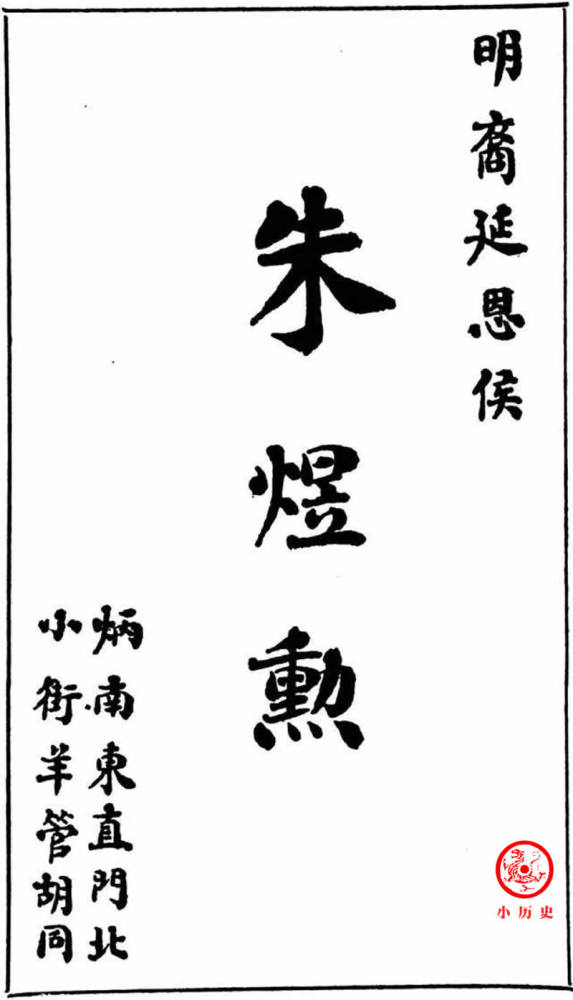 明裔延恩侯
朱煜勳
炳南東直門北
小街羊管胡同
小历史